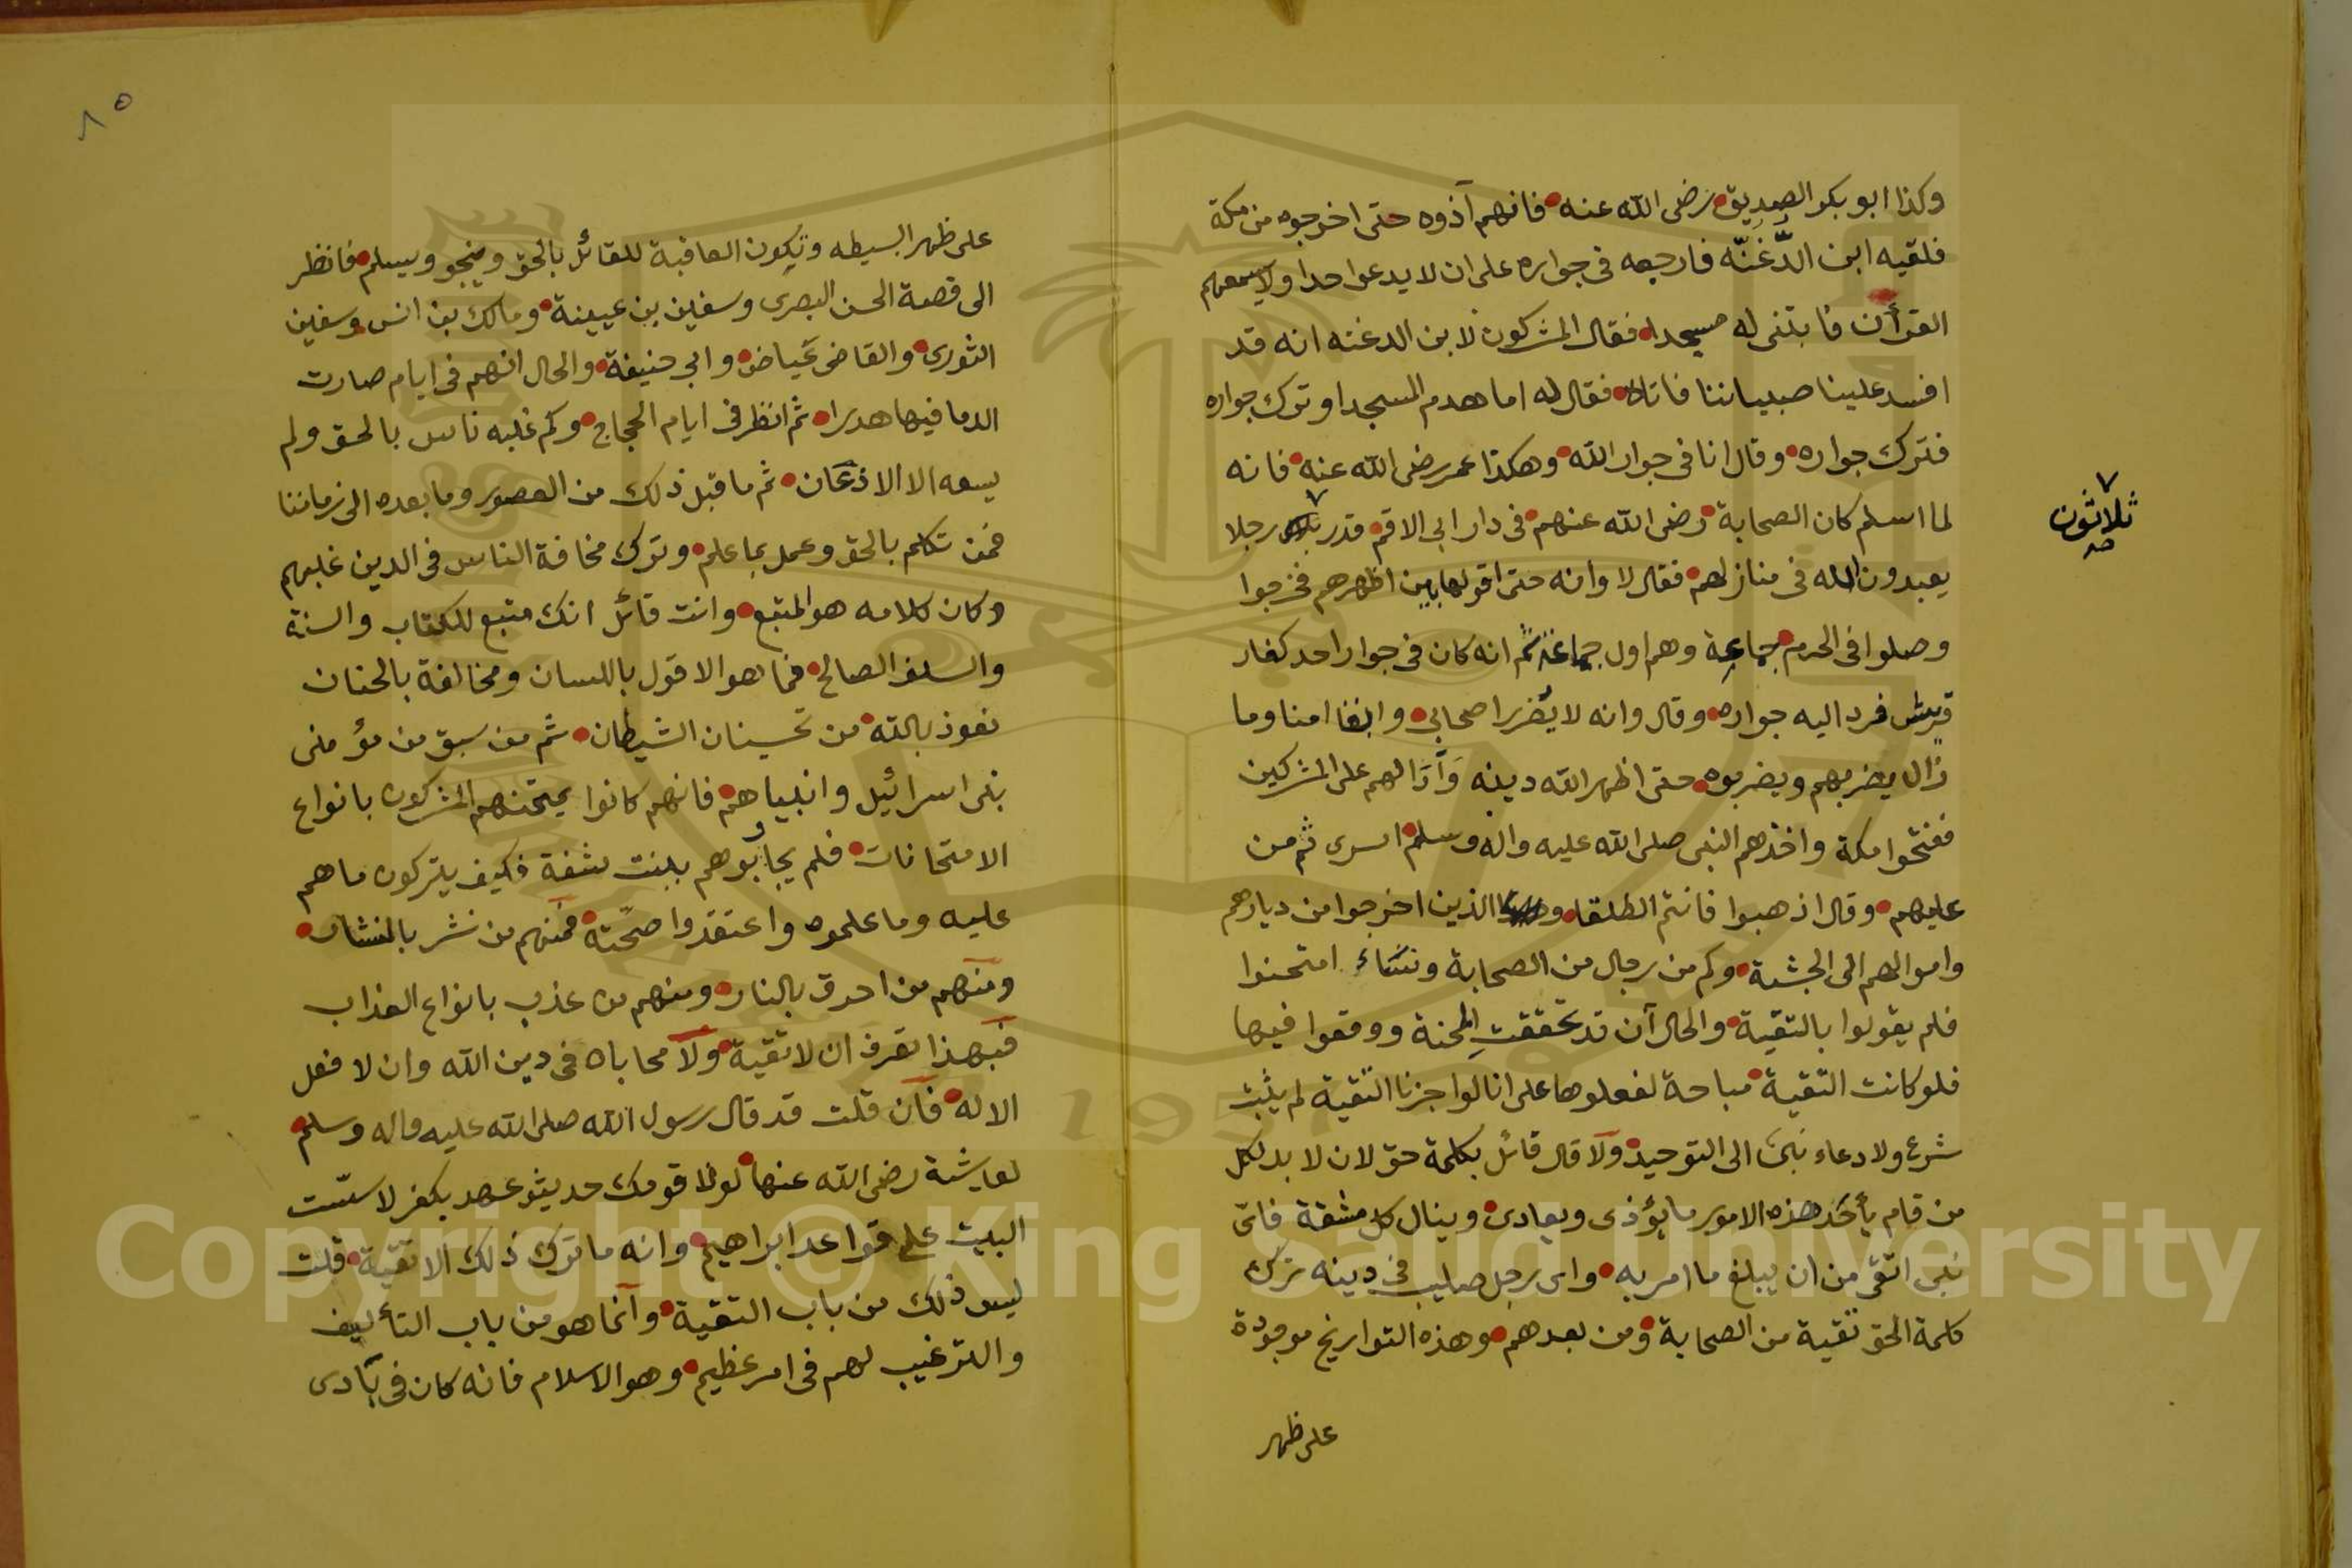 وكذا ابو بكر الصديق رضى الله عنه فانهم آذوه حتى اخرجوه من مكة
فلقيه ابن الدَّغنّه فارجعه فى جواره على ان لا يدعوا حدا ولا يسمعهم
القرأن فابتنى له مسجدا فقال المشركون لابن الدغنه انه قد
افسد علينا صبياننا فاتاه فقال له اما هدم المسجد او ترك جواره
فترك جواره وقال انا فى جوار الله وهكذا عمر رضى الله عنه فانه
لما اسلم كان الصحابة رضى الله عنهم فى دار ابى الاقم قدر رجلا
ثلاثون
صح
يعبدون الله فى منازلهم فقال لا وانه حتى اقولها بين اظهرهم فخرجوا
وصلوا فى الحرم جماعة وهم اول جماعة ثم انه كان فى جوار احد كفار
قريش فرد اليه جواره وقال وانه لا يُضر اصحابى وابقا امنا وما
زال يضربهم ويضربوه حتى اظهر الله دينه وآزالهم على المشركين
ففتحوا مكة واخذهم النبى صلى الله عليه واله وسلم اسرى ثم من
عليهم وقال اذهبوا فانتم الطلقا الذين اخرجوا من ديارهم
واموالهم الى الحبشة وكم من رجال من الصحابة ونساء امتحنوا
فلم يقولوا بالتقية والحال آن قد تحققت المحنة ووقعوا فيها
فلو كانت التقية مباحة لفعلوها على انا لو اجزنا التقية لم يثبت
شرع ولا دعاء نبى الى التوحيد ولا قال قائل بكلمة حق لان لا بد لكل
من قام بأحد هذه الامور ما يؤذى ويعادى وينال كل مشقة فاى
نبى اتقى من ان يبلغ ما امر به واى رجل صليب فى دينه ترك
كلمة الحق تقية من الصحابة ومن بعدهم وهذه التواريخ موجودة
على ظهر
٨٥
على ظهر البسيطه وتكون العاقبة للقائل بالحق وينجو ويسلم فانظر
الى قصة الحسن البصرى وسفين بن عيينة ومالك بن انس وسفين
الثورى والقاضى عياض وابى حنيفة والحال انهم فى ايام صارت
الدما فيها هدرا ثم انظر فى ايام الحجاج وكم غلبه ناس بالحق ولم
يسعه الا الاذعان ثم ما قبل ذلك من العصور وما بعده الى زماننا
فمن تكلم بالحق وعمل بما علم وترك مخافة الناس فى الدين غلبهم
وكان كلامه هو المتبع وانت قائل انك متبع للكتاب والسنة
والسلف الصالح فما هو الا قول باللسان ومخالفة بالجنان
نعوذ بالله من تحسينان الشيطان ثم من سبق من مؤمنى
بنى اسرائيل وانبياهم فانهم كانوا يمتحنهم المشركون بانواع
الامتحانات فلم يجابوهم ببنت شفة فكيف يتركون ما هم
عليه وما علموه واعتقدوا صحته فمنهم من نشر بالمنشار
ومنهم من احرق بالنار ومنهم من عذب بانواع العذاب
فبهذا تعرف ان لا تقية ولا محاباه فى دين الله وان لا فعل
الا له فان قلت قد قال رسول الله صلى الله عليه واله وسلم
لعايشة رضى الله عنها لولا قومك حديثو عهد بكفر لاسّست
البيت على قواعد ابراهيم وانه ما ترك ذلك الا تقية قلت
ليس ذلك من باب التقية وانما هو من باب التأليف
والترغيب لهم فى امر عظيم وهو الاسلام فانه كان فى بادى
Copyright © King Saud University
1957